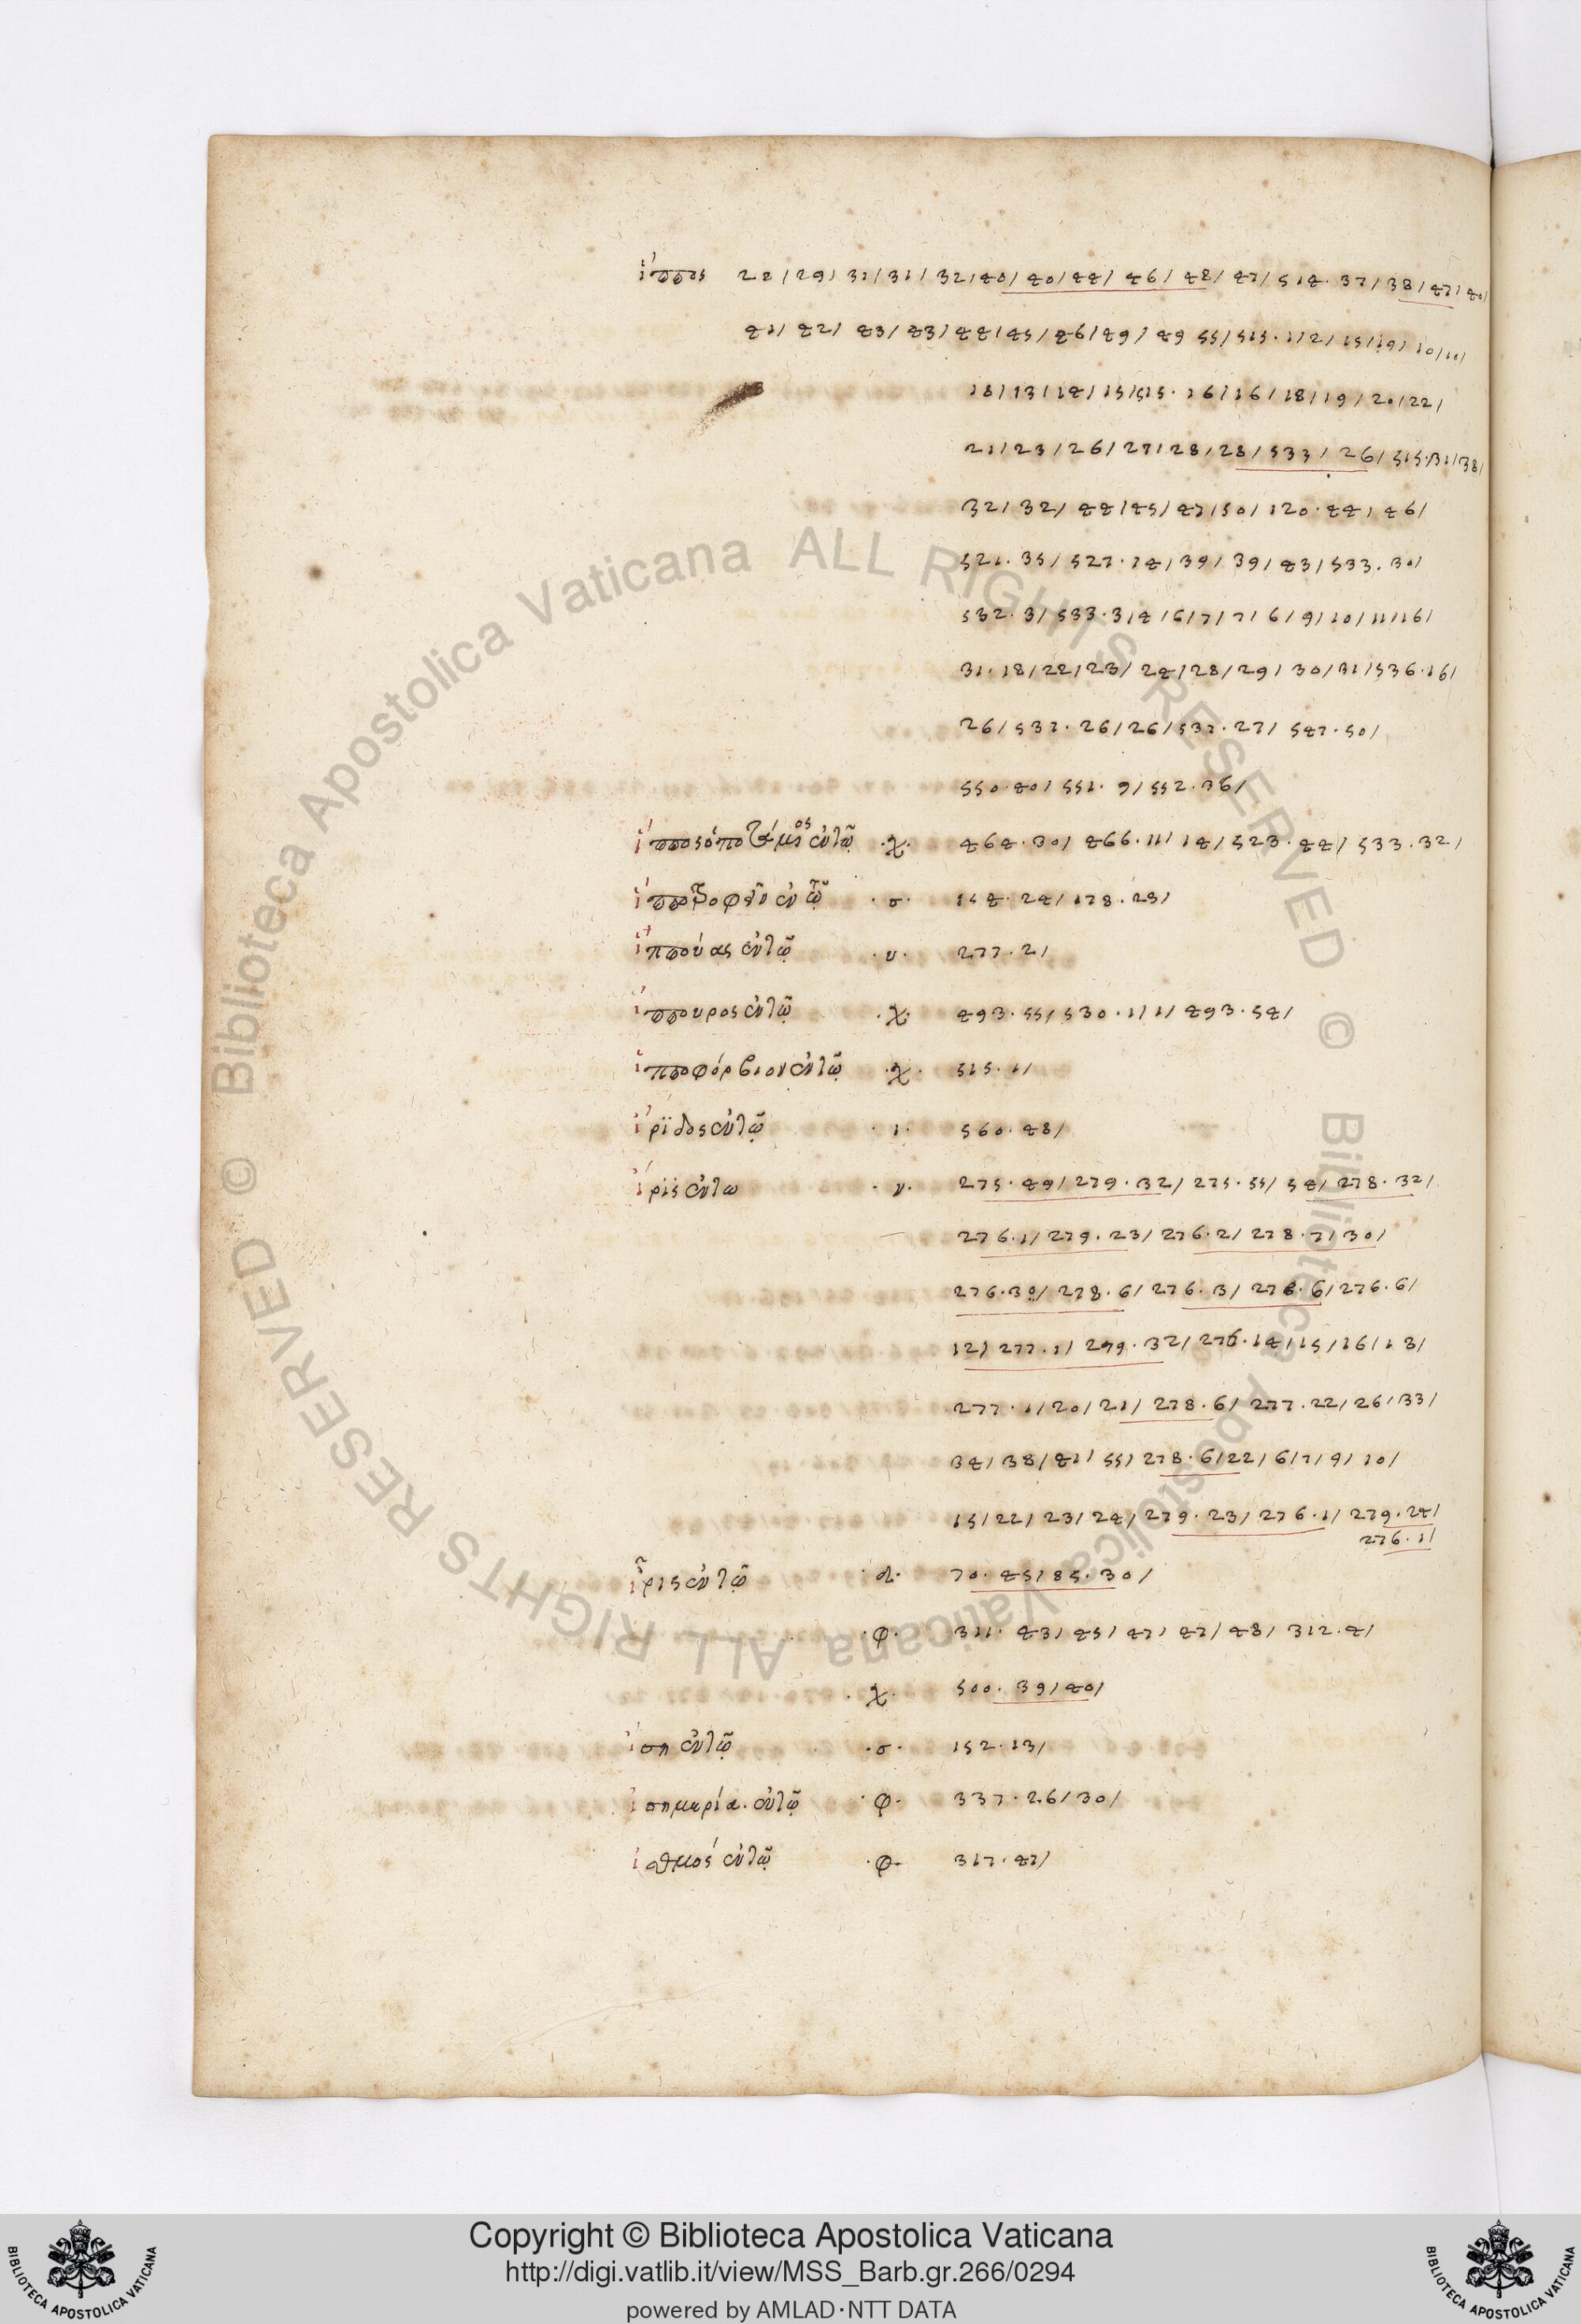 ἵππος 22/29/31/31/32/40/40/44/46/48/47/514.37/38/47/40/
41/42/43/43/44/45/46/49/49 55/515.1/2/15/19/10/10/
18/13/14/15/515.16/16/18/19/20/22/
21/23/26/27/28/28/533/26/515.31/38/
32/32/44/45/47/50/120.44/46/
521.35/527.14/39/39/43/533.30/
532.3/533.3/4/6/7/7/6/9/10/11/16/
31.18/22/23/24/28/29/30/31/536.16/
26/537.26/26/537.27/547.50/
550.40/551.9/552.36/
ἵπποςὁποτάμιος ἐν τῷ .χ. 464.30/466.11/14/523.44/533.32/
ἱπποτροφεῖν ἐν τῷ .σ. 154.24/178.29/
ἱππούας ἐν τῷ .υ. 277.2/
ἵππουρος ἐν τῷ .χ. 493.55/530.1/1/493.54/
ἱπποφόρβιον ἐν τῷ .χ. 515.1/
ἴριδος ἐν τῷ .ι. 560.48/
ἴρις ἐν τω .ν. 275.49/279.32/275.55/54/278.32/
276.1/279.23/276.2/278.7/30/
276.30/278.6/276.3/276.6/276.6/
12/277.1/279.32/276.14/15/16/18/
277.1/20/21/278.6/277.22/26/33/
34/38/41/55/278.6/22/6/7/9/10/
15/22/23/24/279.23/276.1/279.24/
276.1/
ἶρις ἐν τῷ .λ. 70.45/85.30/
.φ. 311.43/45/47/47/48/312.4/
.χ. 500.39/40/
ἴση ἐν τῷ .σ. 152.13/
ἰσημερία. ἐν τῷ .φ. 337.26/30/
ἰσθμός ἐν τῷ .φ. 317.47/
Copyright © Biblioteca Apostolica Vaticana
http://digi.vatlib.it/view/MSS_Barb.gr.266/0294
powered by AMLAD·NTT DATA
BIBLIOTECA APOSTOLICA VATICANA
BIBLIOTECA APOSTOLICA VATICANA
© Biblioteca Apostolica Vaticana ALL RIGHTS RESERVED © Biblioteca Apostolica Vaticana ALL RIGHTS RESERVED